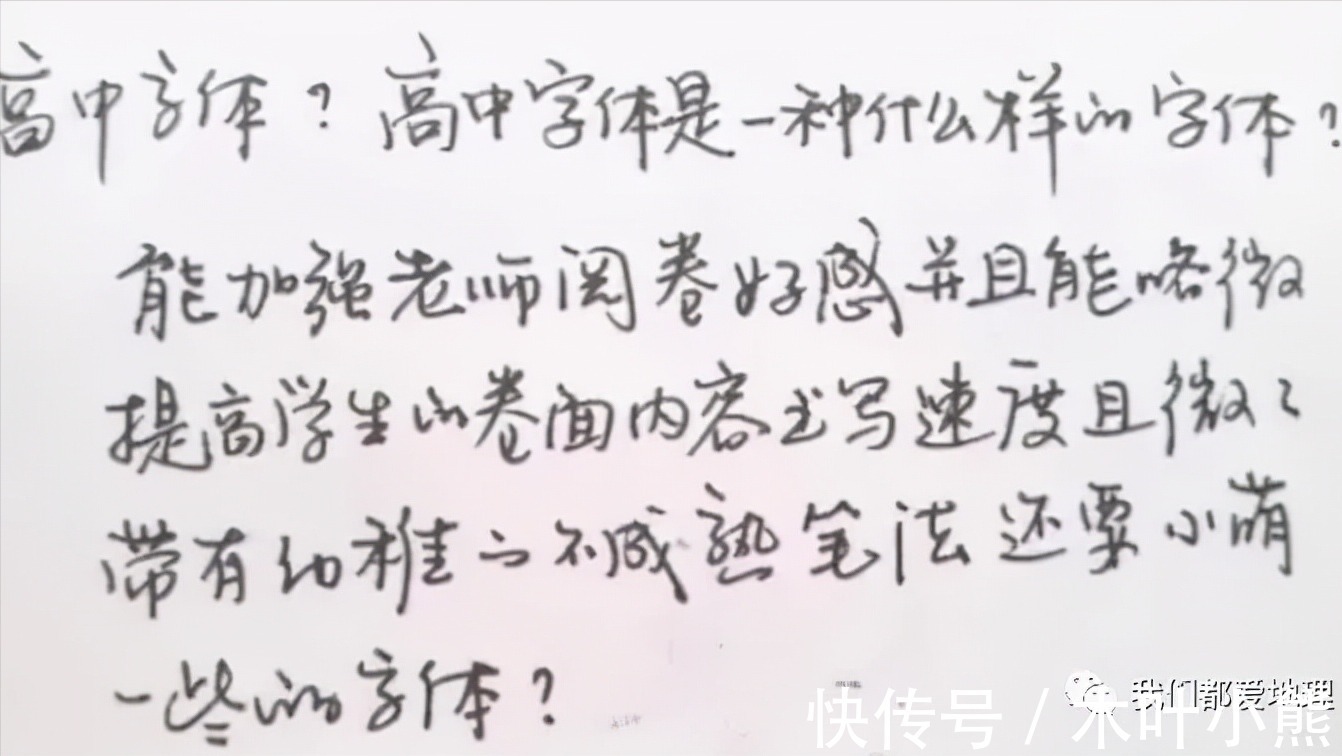 高中字体？高中字体是一种什么样的字体？
能加强老师阅卷好感并且能略微
提高学生的卷面内容书写速度且微微
带有幼稚的不成熟笔法还要小萌
一些的字体？
我们都爱地理
快传号／木叶小熊